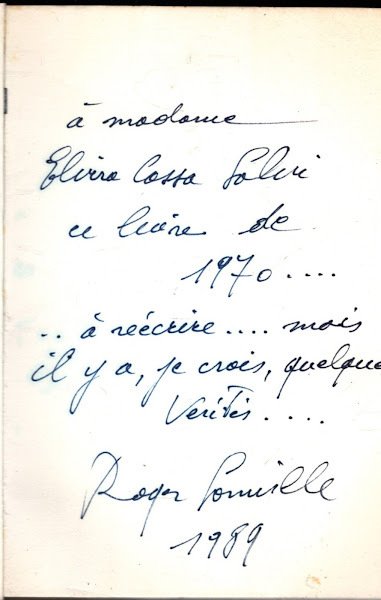 à madame
Elvira Cassa Salvi
ce livre de
1970....
.. à réécrire.... mais
il y a, je crois, quelque
Vérités....
Roger Somville
1989